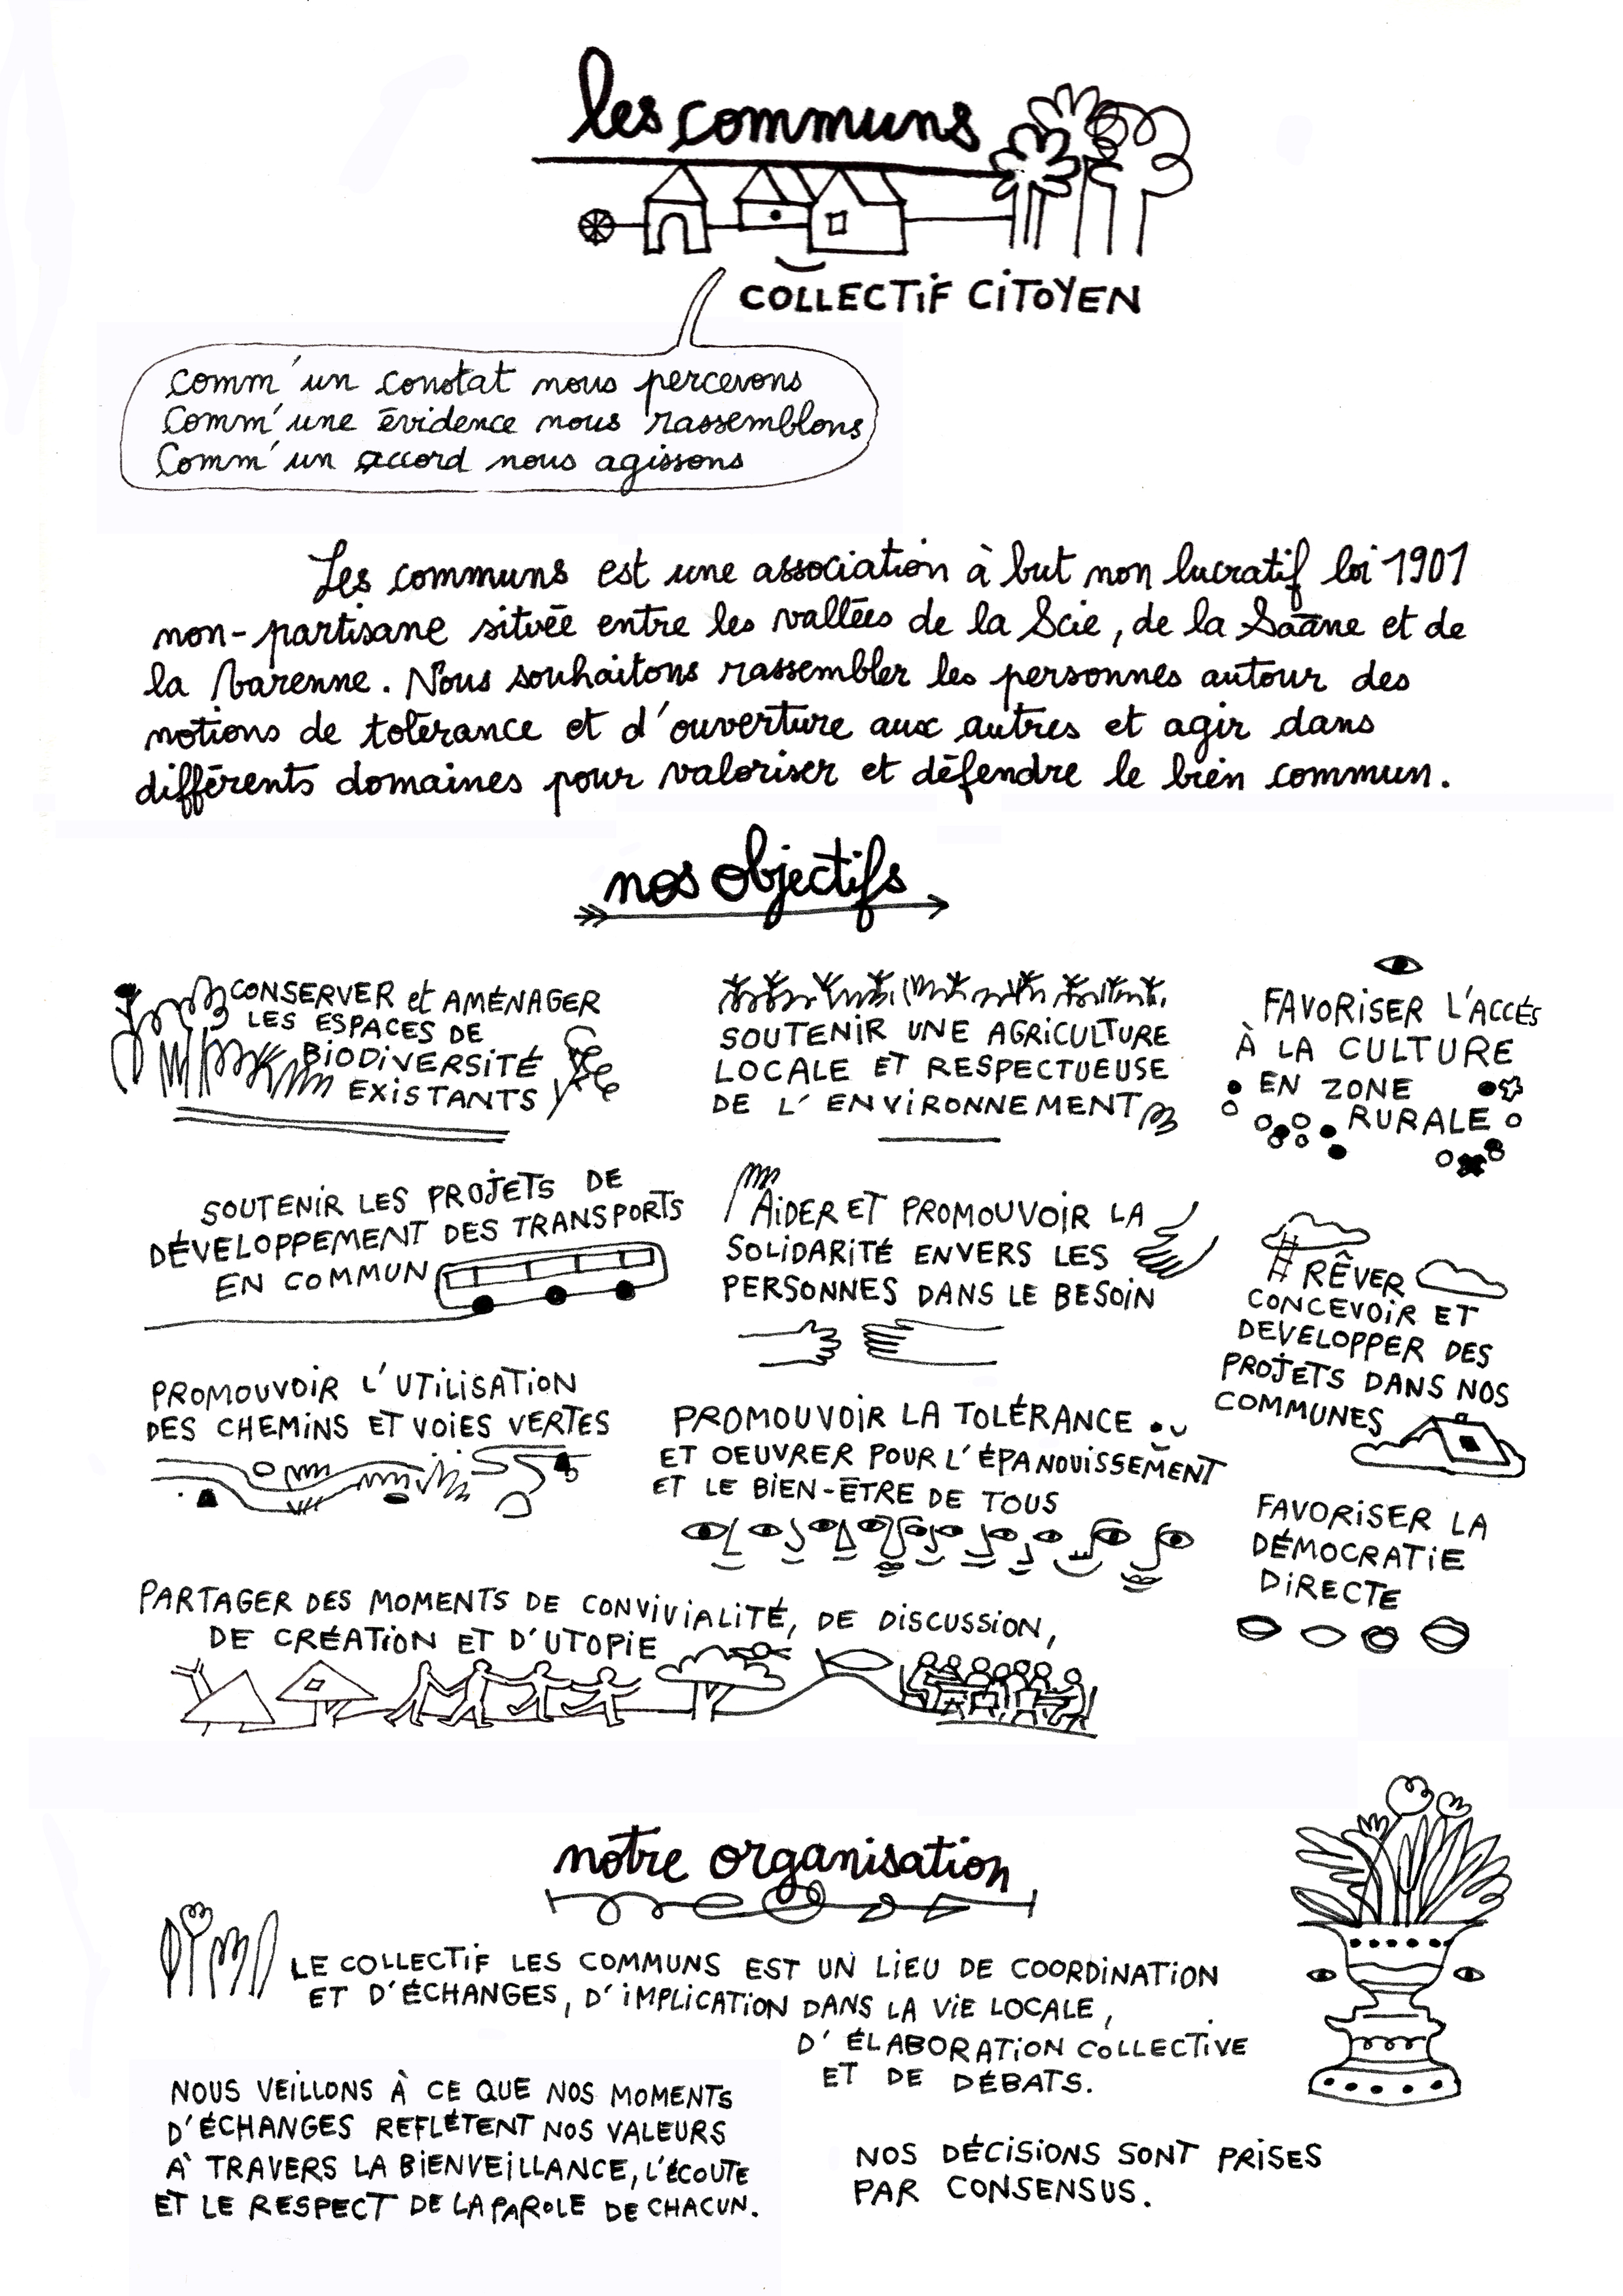 les communs
COLLECTIF CITOYEN
Comm'un constat nous percevons
Comm'une évidence nous rassemblons
Comm'un accord nous agissons
Les communs est une association à but non lucratif loi 1901
non-partisane située entre les vallées de la Scie, de la Saâne et de
la Varenne. Nous souhaitons rassembler les personnes autour des
notions de tolérance et d'ouverture aux autres et agir dans
différents domaines pour valoriser et défendre le bien commun.
nos objectifs
CONSERVER et AMÉNAGER
LES ESPACES DE
BIODIVERSITÉ
EXISTANTS
SOUTENIR UNE AGRICULTURE
LOCALE ET RESPECTUEUSE
DE L'ENVIRONNEMENT
FAVORISER L'ACCÉS
À LA CULTURE
EN ZONE
RURALE
SOUTENIR LES PROJETS DE
DÉVELOPPEMENT DES TRANSPORTS
EN COMMUN
AIDER ET PROMOUVOIR LA
SOLIDARITÉ ENVERS LES
PERSONNES DANS LE BESOIN
RÊVER
CONCEVOIR ET
DEVELOPPER DES
PROJETS DANS NOS
COMMUNES
PROMOUVOIR L'UTILISATION
DES CHEMINS ET VOIES VERTES
PROMOUVOIR LA TOLÉRANCE
ET OEUVRER POUR L'ÉPANOUISSEMENT
ET LE BIEN-ÊTRE DE TOUS
FAVORISER LA
DÉMOCRATIE
DIRECTE
PARTAGER DES MOMENTS DE CONVIVIALITÉ, DE DISCUSSION,
DE CRÉATION ET D'UTOPIE
notre organisation
LE COLLECTIF LES COMMUNS EST UN LIEU DE COORDINATION
ET D'ÉCHANGES, D'IMPLICATION DANS LA VIE LOCALE,
D'ÉLABORATION COLLECTIVE
ET DE DÉBATS.
NOUS VEILLONS À CE QUE NOS MOMENTS
D'ÉCHANGES REFLÉTENT NOS VALEURS
À TRAVERS LA BIENVEILLANCE, L'ÉCOUTE
ET LE RESPECT DE LA PAROLE DE CHACUN.
NOS DÉCISIONS SONT PRISES
PAR CONSENSUS.